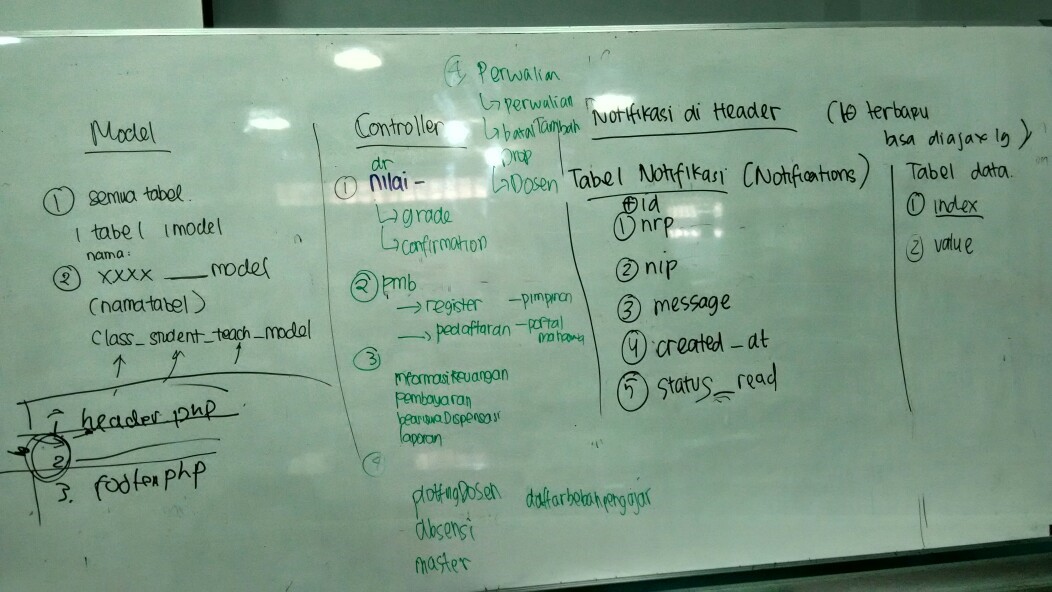 Model
① semua tabel.
1 tabel 1 model
nama:
② xxxx ___ model
(namatabel)
Class_student_teach_model
1. header.php
2
3. footer.php
Controller
dr
① nilai -
↳ grade
↳ confirmation
② pmb
→ register - pimpinan
→ pedaftaran - portal
③
informasikeuangan
pembayaran
beasiswaDispensasi
laporan
④
plottingDosen daftarbebanpengajar
absensi
master
④ Perwalian
↳ perwalian
↳ batalTambah
Drop
↳ Dosen
Notifikasi di Header (10 terbaru
bisa diajax lg)
Tabel Notifikasi (Notifications)
⊕ id
① nrp
② nip
③ message
④ created_at
⑤ status_read
Tabel data.
① index
② value